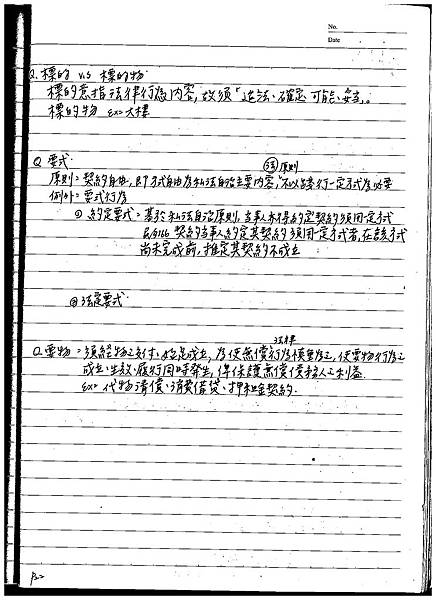 No.
Date
Q. 標的 v.s 標的物
標的意指法律行為內容, 故須「適法、確定、可能、妥當」。
標的物 ex=大樓
Q. 要式
㊟原則
原則=契約自由, 即方式自由為私法自治主要內容, 不以踐行一定方式為必要
例外=要式行為
① 約定要式=基於私法自治原則, 當事人亦得約定契約須用一定方式
民§166 契約當事人約定其契約須用一定方式者, 在該方式
尚未完成前, 推定其契約不成立
② 法定要式
法律
Q. 要物=須經物之交付, 始能成立, 為使無償行為慎重為之, 使要物行為之
成立、生效、履行同時發生, 俾保護無償債務人之利益
ex=代物清償、消費借貸、押租金契約.